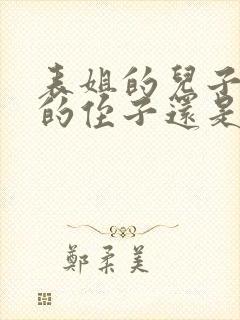 表姐的兒子
的侄子還是
鄭柔美